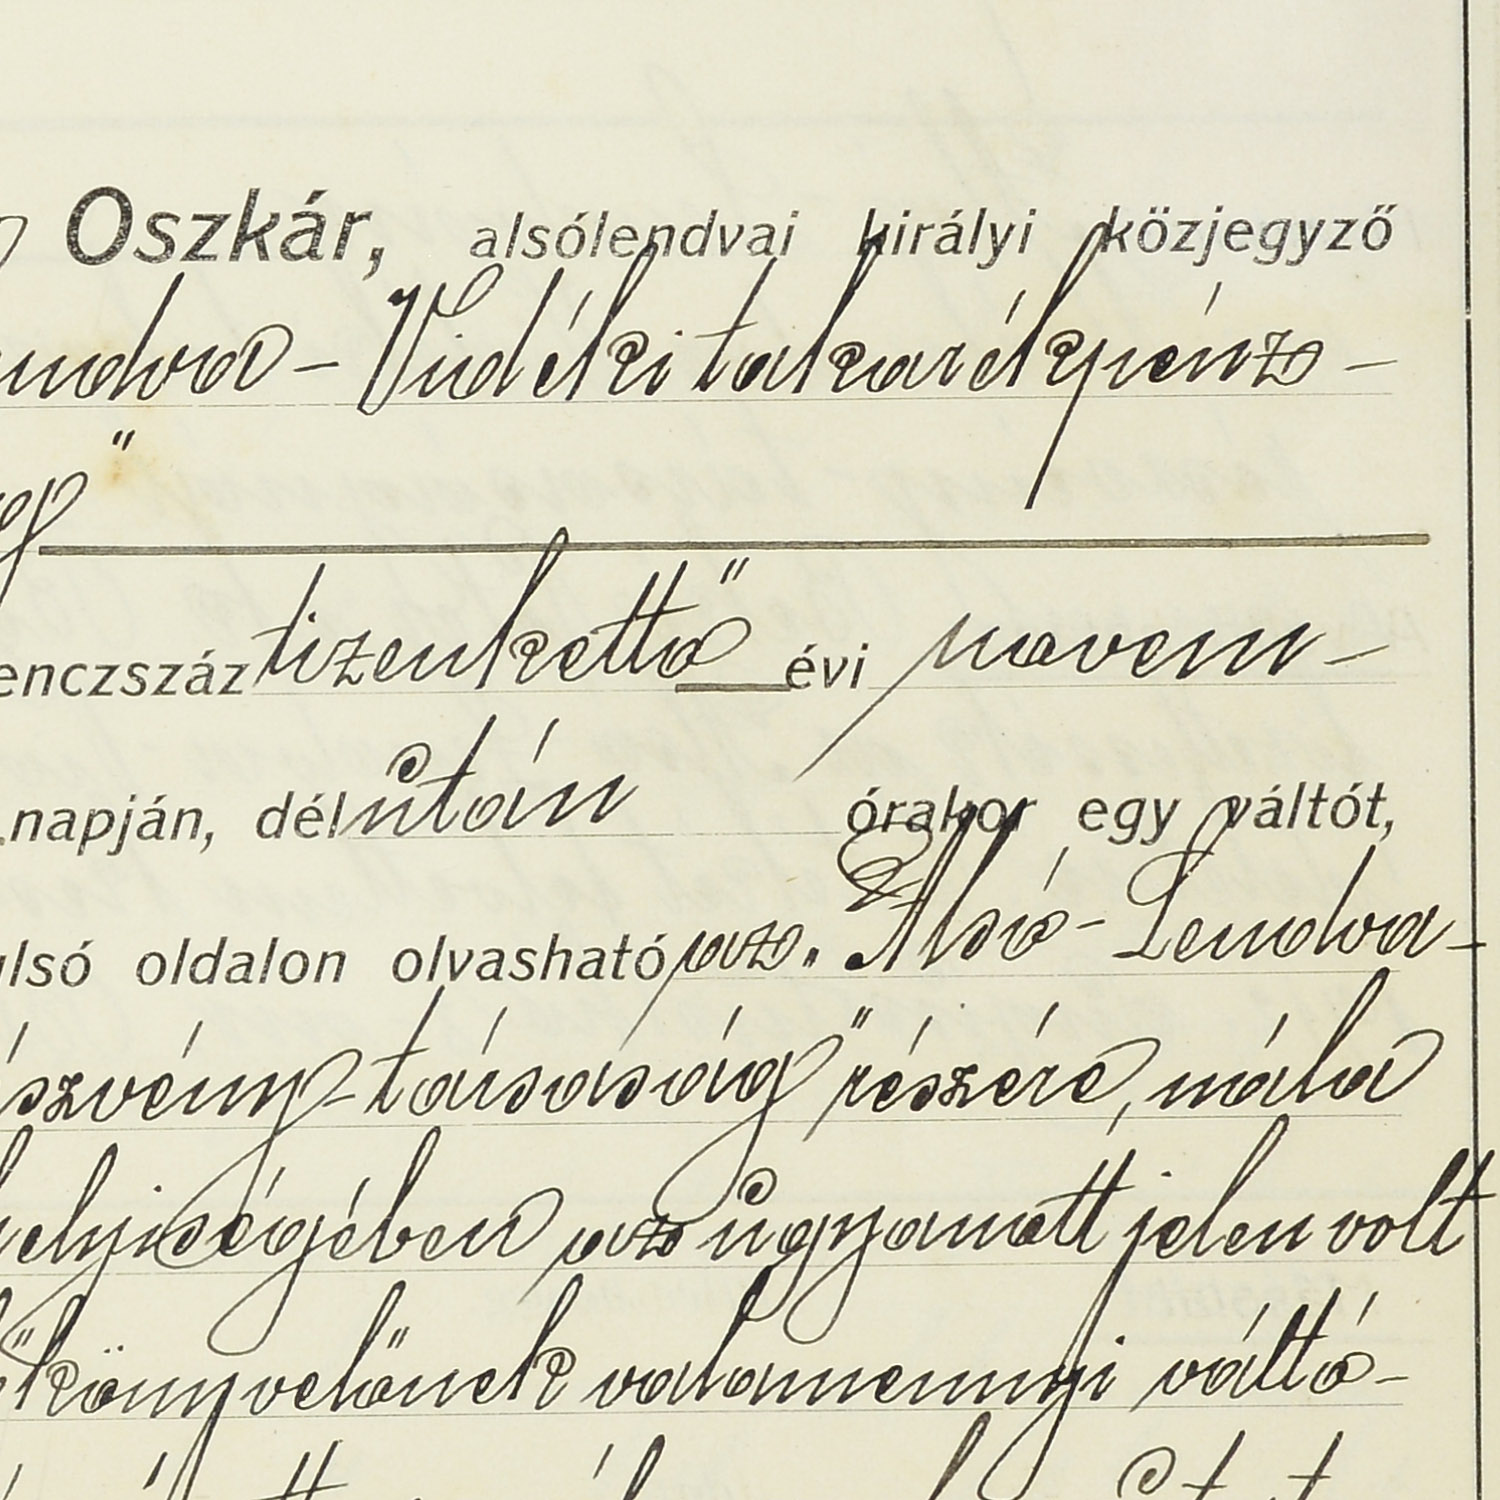 Oszkár, alsólendvai királyi közjegyző
endva - Vidéki takarékpénz-
g"
enczszáz tizenkettő évi novem-
napján, délután órakor egy váltót,
ulsó oldalon olvasható az „Alsó-Lendva-
észvény-társaság" részére, nála
helyiségében az ugyanott jelen volt
könyvelőnek valamennyi váltó-